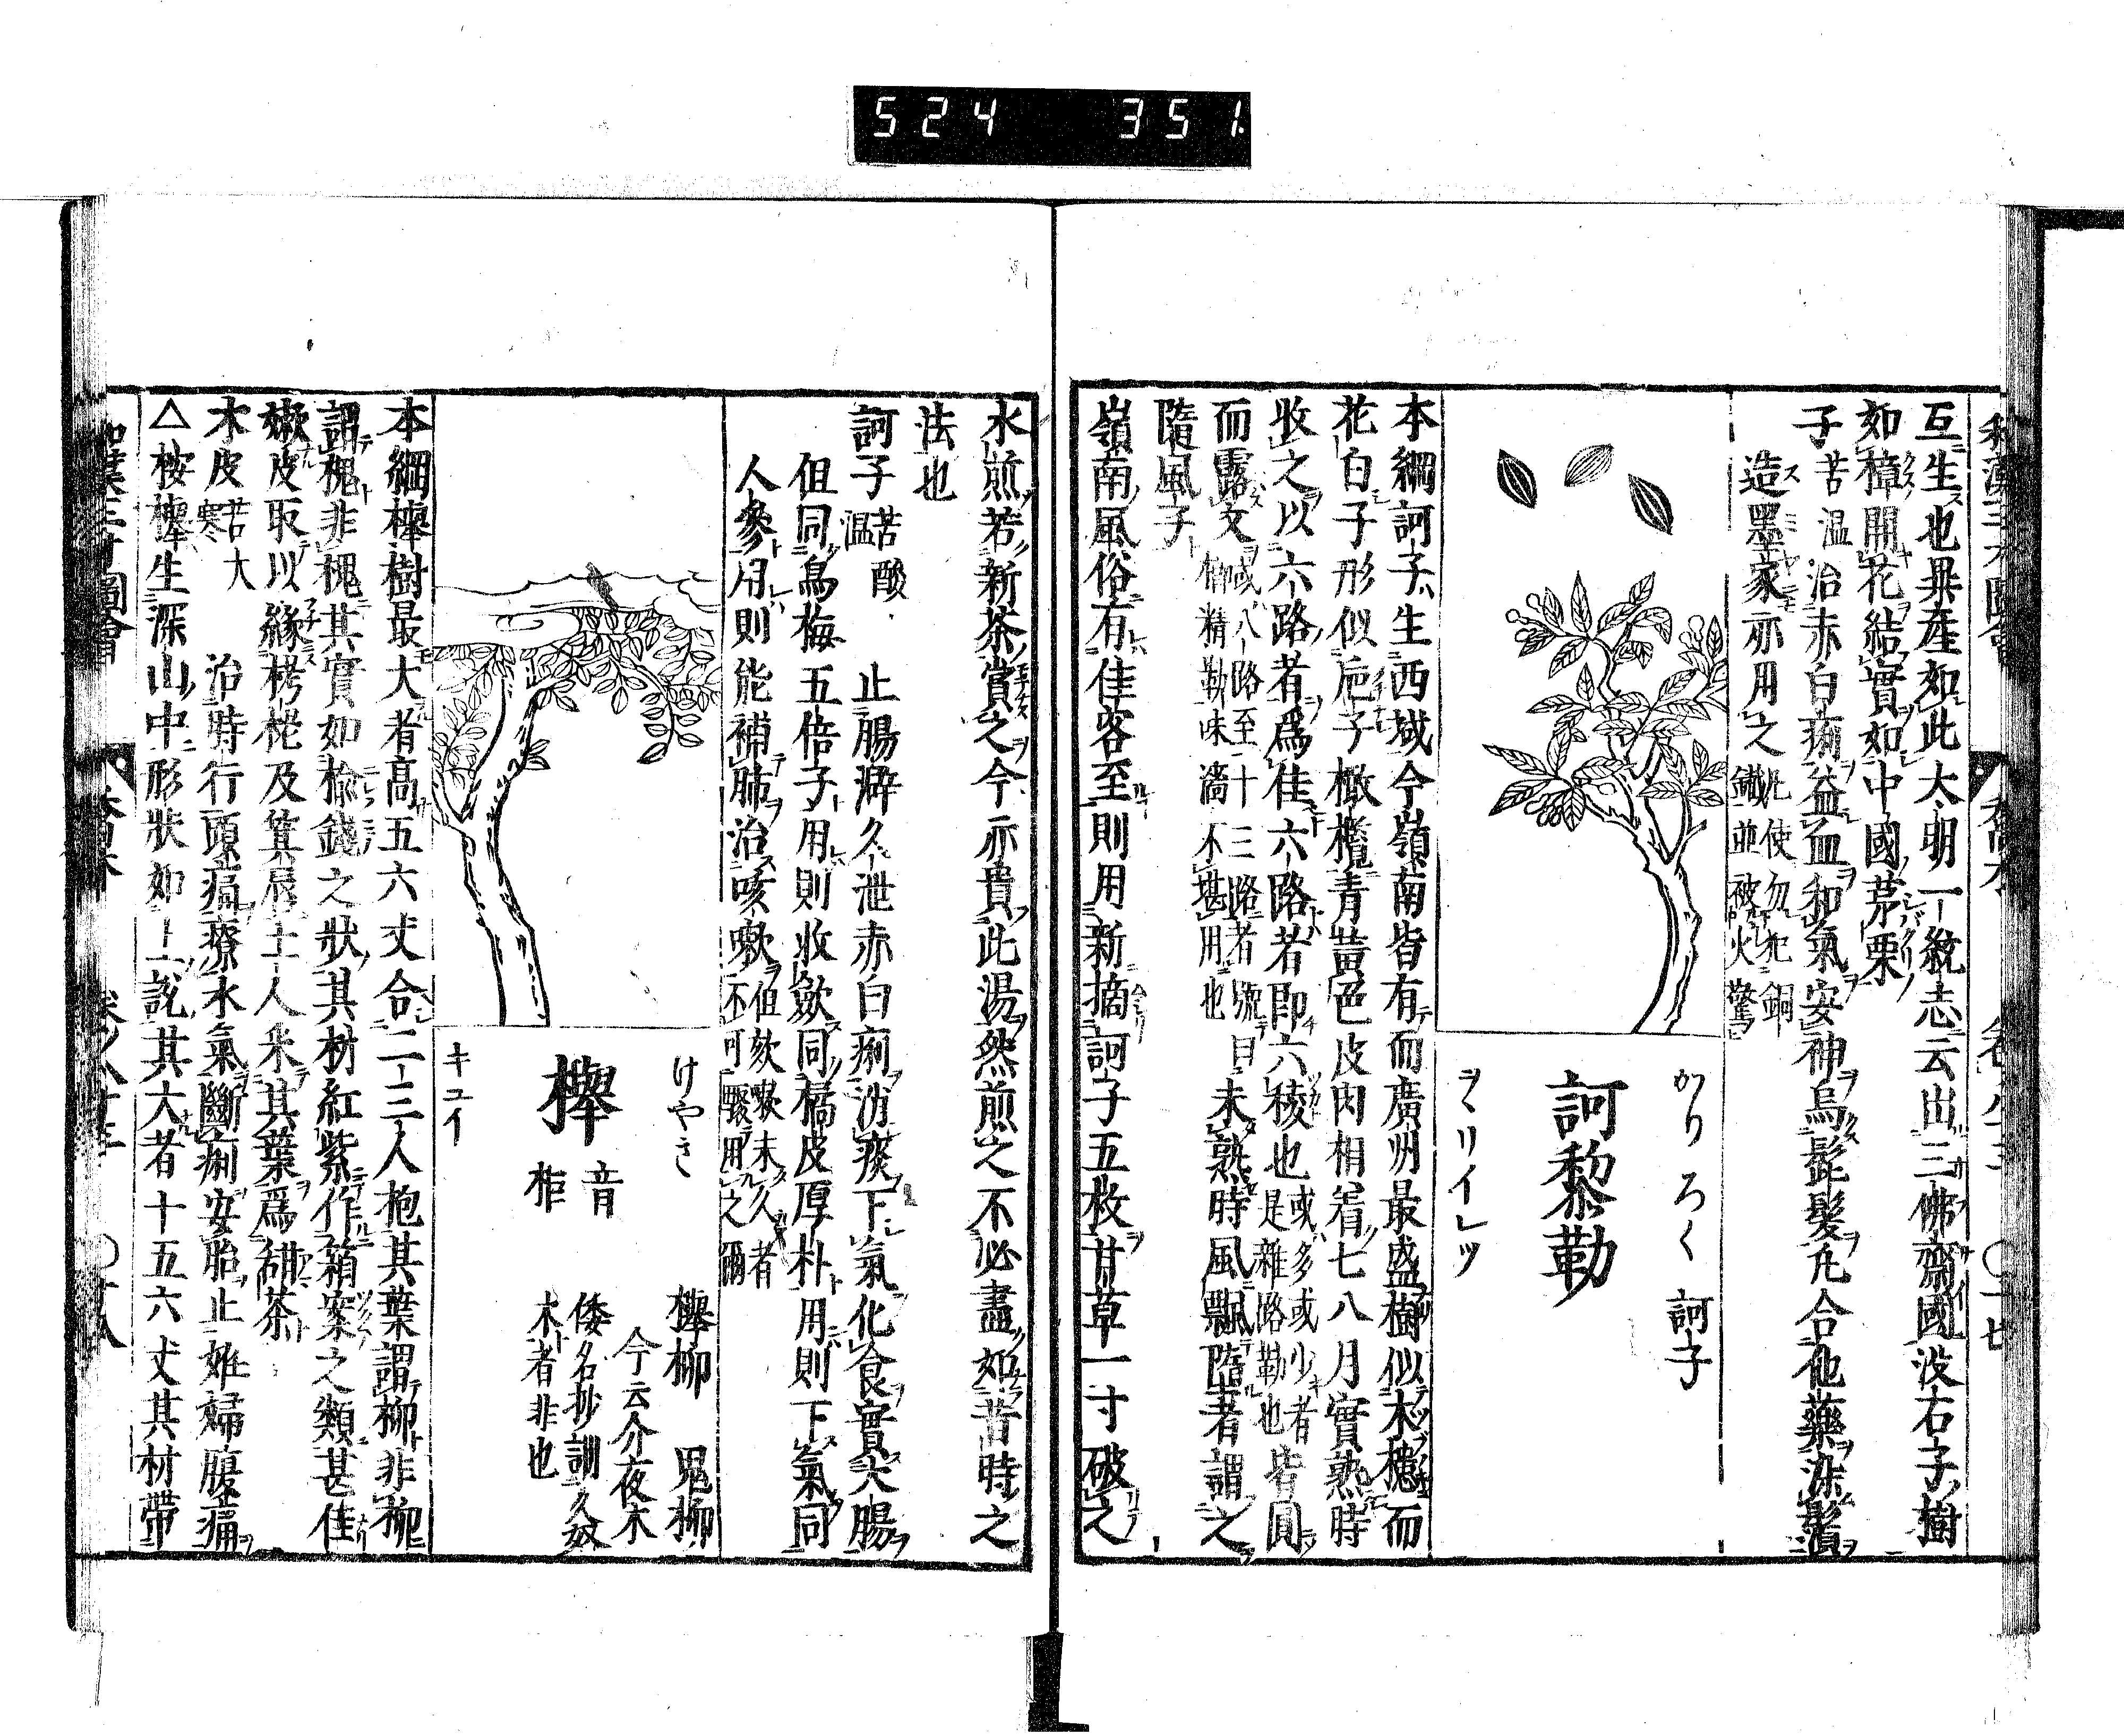 524 351
和漢三才圖會 喬木 卷ノ八十三 〇二十七
互生也畢産如此大明一統志云出三佛齋國没石子樹
如樟開花結實如中國茅栗
子 苦温 治赤白痢益血和氣安神烏髭髮凡合他藥染鬚
造墨家亦用之 凡使勿犯銅
鐵並被火驚
かりろく
訶子
訶黎勒
ヲヽリイレツ
本綱訶子生西域今嶺南皆有而廣州最盛樹似木槵而
花白子形似巵子橄欖青黃色皮肉相着七八月實熟時
收之以六路者爲佳六路者即六稜也 或多或少者皆圓
是雜路勒也
而露文 或八路至十三路者號曰
榔精勒味濇不堪用也
未熟時風飄墮者謂之
隨風子
嶺南風俗有佳客至則用新摘訶子五枚甘草一寸破之
水煎若新茶賞之今亦貴此湯然煎之不必盡如昔時之
法也
訶子 苦酸
温
止腸澼久泄赤白痢消痰下氣化食實大腸
但同烏梅五倍子用則收歛同橘皮厚朴用則下氣同
人參用則能補肺治咳嗽 但欬嗽未久者
不可驟用之爾
けやき
欅柳 鬼柳
欅 音
柜
今云介夜木
倭名抄訓久奴
木者非也
キユイ
本綱欅樹最大者高五六丈合二三人抱其葉謂柳非柳
謂槐非槐其實如楡錢之狀其材紅紫作箱案之類甚佳
嫩皮取以緣栲栳及箕唇土人采其葉爲甜茶
木皮 苦大
寒
治時行頭痛療水氣斷痢安胎止妊婦腹痛
△桉欅生深山中形狀如上說其大者十五六丈其材帶
和漢三才圖會 喬木 卷ノ八十三 〇二十八